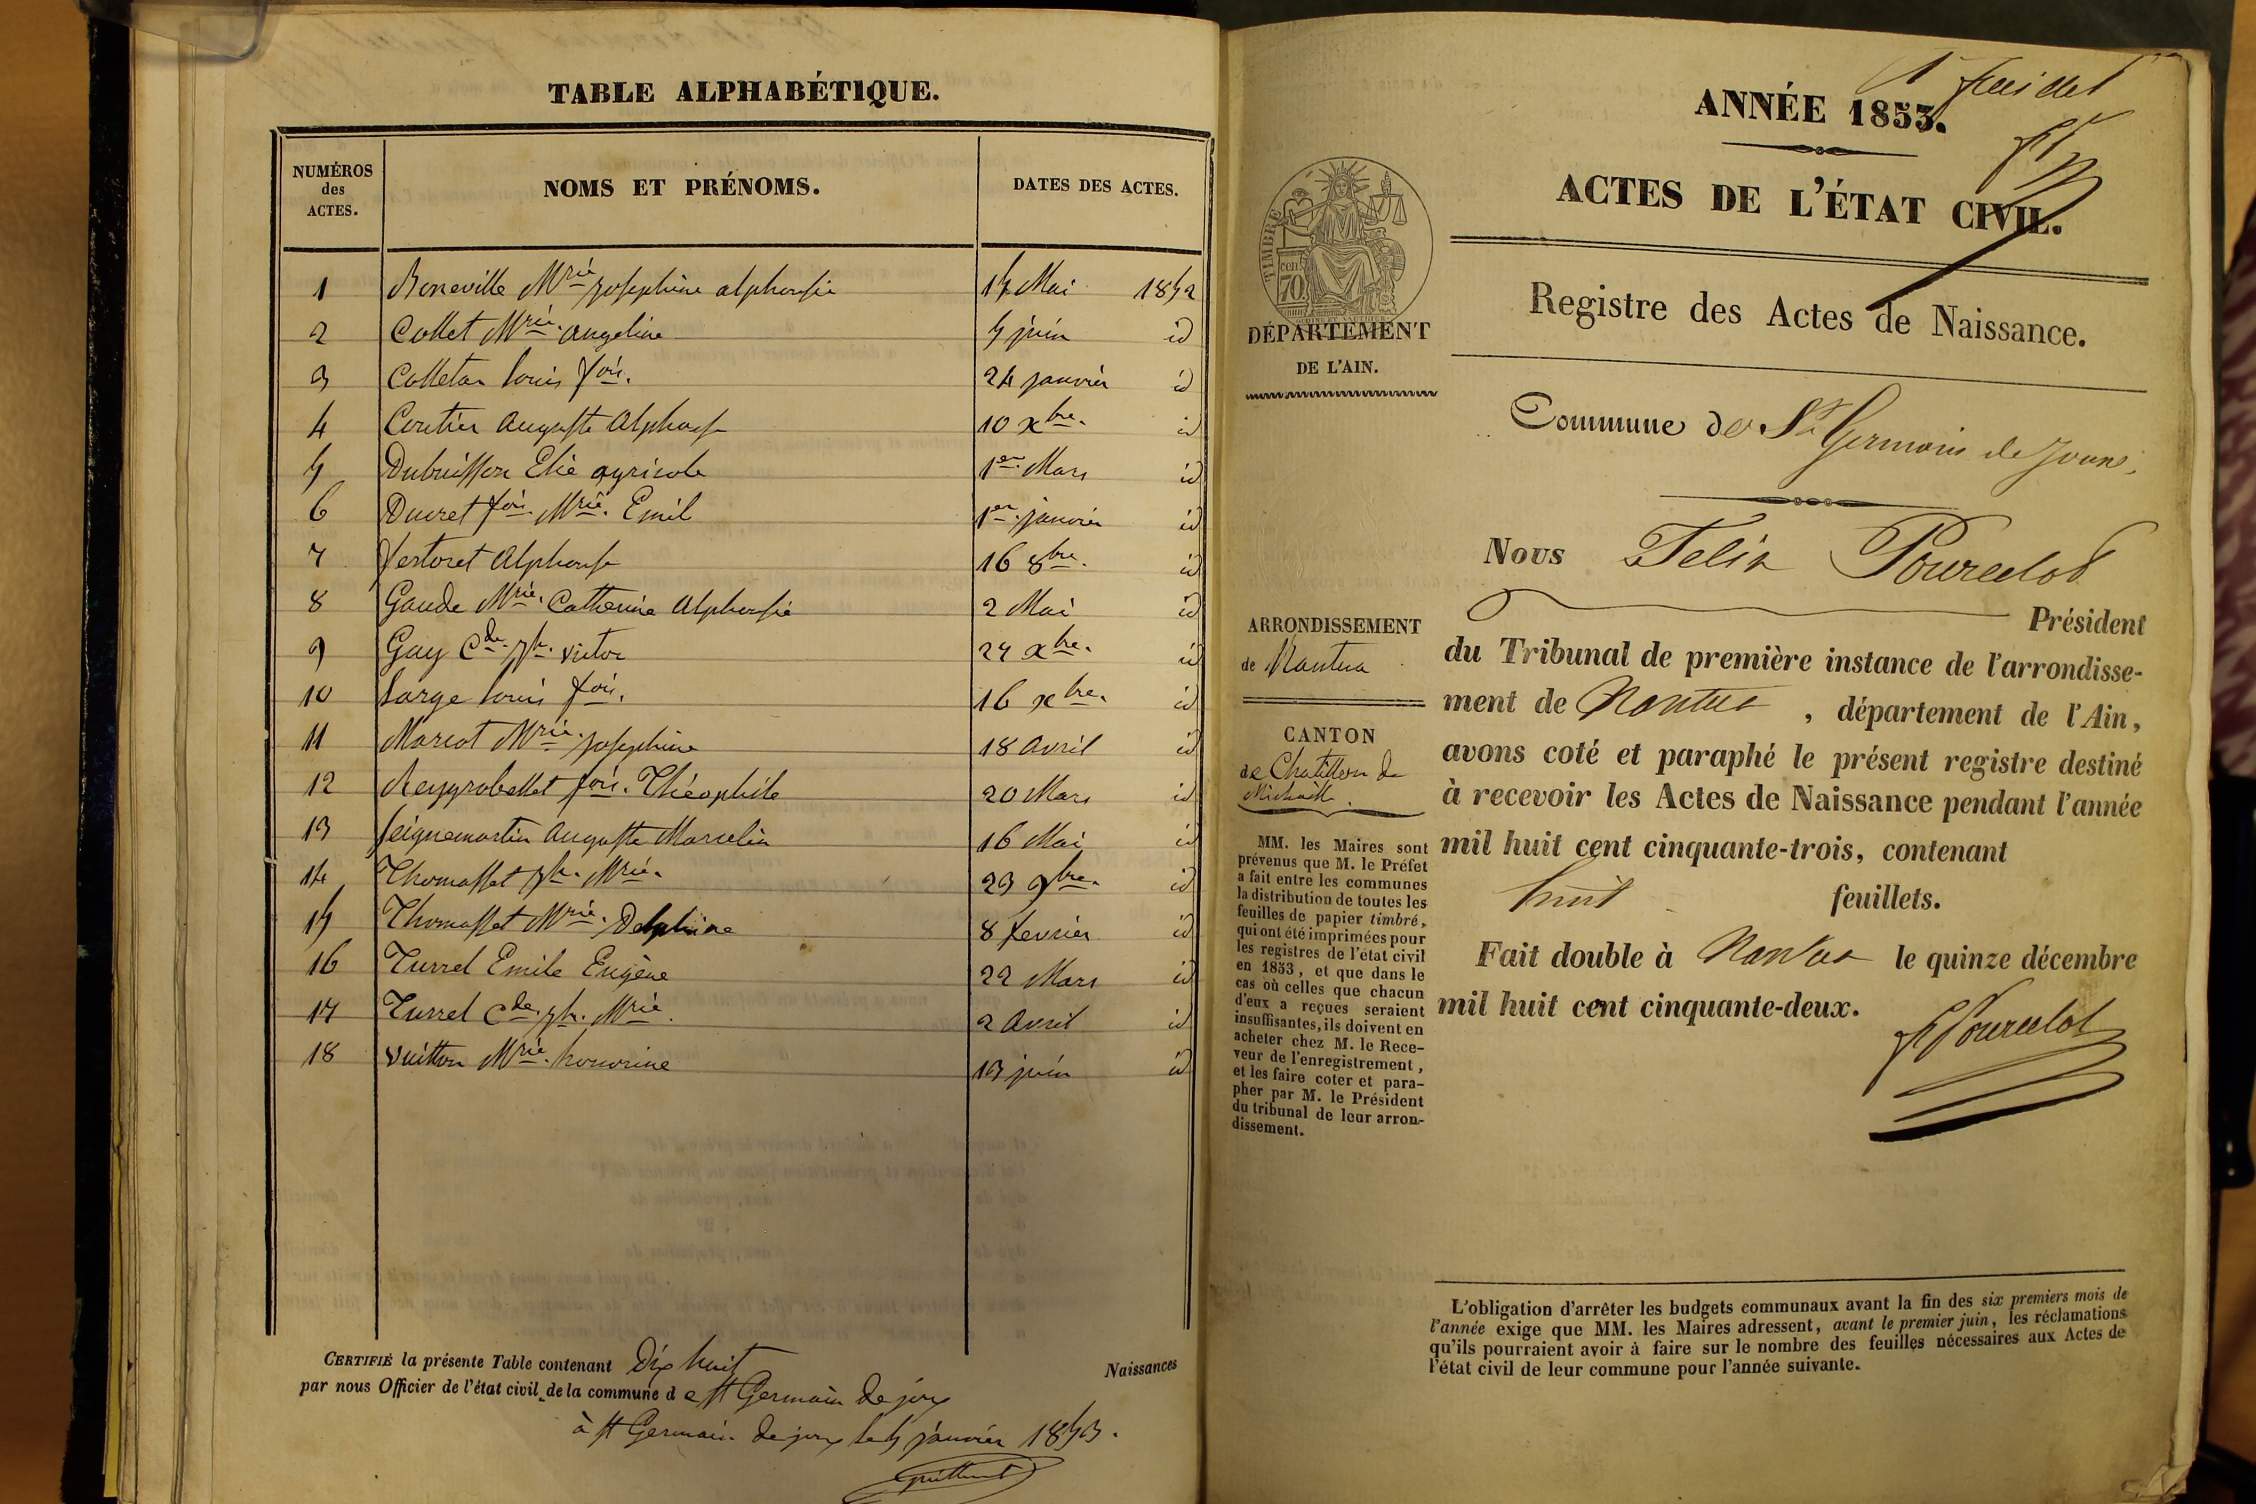 TABLE ALPHABÉTIQUE.
NUMÉROS des ACTES. NOMS ET PRÉNOMS. DATES DES ACTES.
1 Beneville Mrie Josephine alphonsie 15 Mai 1852
2 Collet Mrie angeline 5 juin id
3 Colletan louis fois. 24 janvier id
4 Coutier Auguste Alphonse 10 xbre. id
5 Dubuisson Elie agricole 1er Mars id
6 Ducret fois. Mrie. Emil 1er janvier id
7 festoret Alphonse 16 8bre. id
8 Gaude Mrie. Catherine Alphonsie 2 Mai id
9 Gay Cde. jh. victor 27 xbre. id
10 large louis fois. 16 xbre. id
11 Marcot Mrie. josephine 18 avril id
12 Reygrobellet fois. Théophile 20 Mars id
13 Seignemartin Auguste Marcelin 16 Mai id
14 Thomasset jh. Mrie. 23 9bre. id
15 Thomasset Mrie. Delphine 8 fevrier id
16 Turrel Emile Eugène 22 Mars id
17 Turrel Cde. jh. Mrie. 2 avril id
18 vuitton Mrie. honorine 13 juin id
CERTIFIÉ la présente Table contenant Dix huit Naissances
par nous Officier de l'état civil de la commune de St Germain de joux
à St Germain de joux le 5 janvier 1853.
1r feuillet
ANNÉE 1853.
ACTES DE L'ÉTAT CIVIL.
TIMBRE
cen.
70.
Registre des Actes de Naissance.
DÉPARTEMENT
DE L'AIN.
Commune de St Germain de Joux.
Nous Felix Pourcelot
Président
du Tribunal de première instance de l'arrondisse-
ment de Nantua , département de l'Ain,
avons coté et paraphé le présent registre destiné
à recevoir les Actes de Naissance pendant l'année
mil huit cent cinquante-trois, contenant
huit feuillets.
Fait double à Nantua le quinze décembre
mil huit cent cinquante-deux.
F Pourcelot
ARRONDISSEMENT
de Nantua
CANTON
de Chatillon de
Michaille.
MM. les Maires sont
prévenus que M. le Préfet
a fait entre les communes
la distribution de toutes les
feuilles de papier timbré,
qui ont été imprimées pour
les registres de l'état civil
en 1853, et que dans le
cas où celles que chacun
d'eux a reçues seraient
insuffisantes, ils doivent en
acheter chez M. le Rece-
veur de l'enregistrement,
et les faire coter et para-
pher par M. le Président
du tribunal de leur arron-
dissement.
L'obligation d'arrêter les budgets communaux avant la fin des six premiers mois de
l'année exige que MM. les Maires adressent, avant le premier juin, les réclamations
qu'ils pourraient avoir à faire sur le nombre des feuilles nécessaires aux Actes de
l'état civil de leur commune pour l'année suivante.